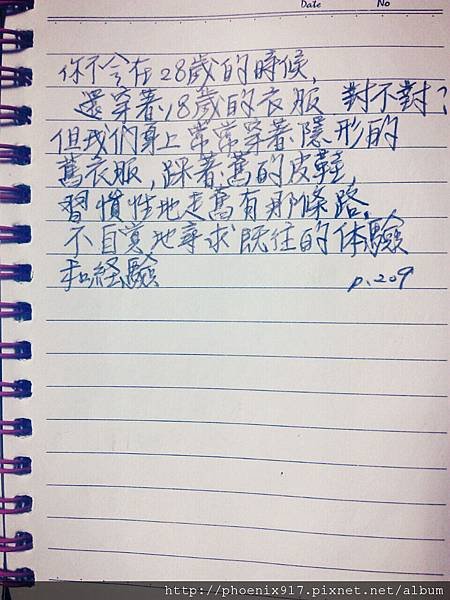 Date No
你不会在28歲的時候,
還穿著18歲的衣服 對不對?
但我們身上常常穿著隱形的
舊衣服,踩著舊的皮鞋,
習慣性地走舊有那條路,
不自覚地尋求既往的体驗
和経驗 p.209
http://phoenix917.pixnet.net/album